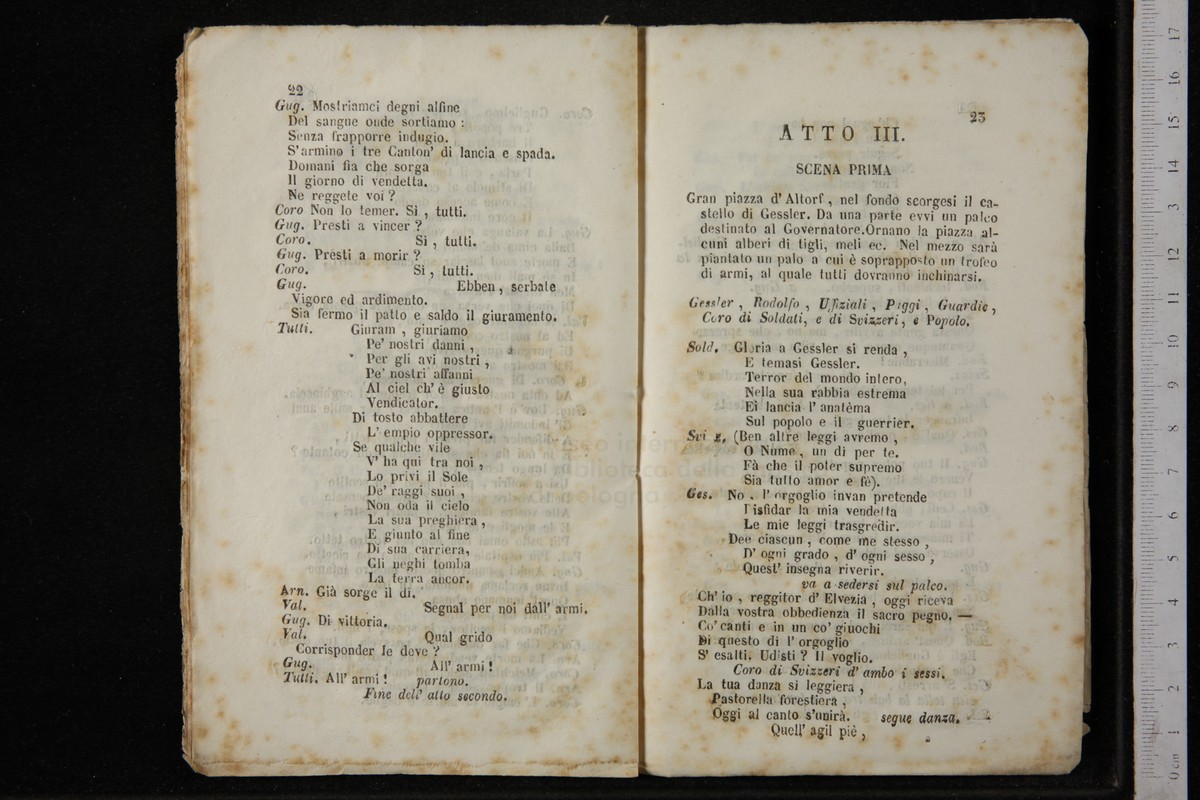 22
Gug. Mostriamci degni alfine
Del sangue onde sortiamo :
Senza frapporre indugio.
S'armino i tre Canton' di lancia e spada.
Domani fia che sorga
Il giorno di vendetta.
Ne reggete voi ?
Coro Non lo temer. Sì , tutti.
Gug. Presti a vincer ?
Coro. Sì , tutti.
Gug. Presti a morir ?
Coro. Sì , tutti.
Gug. Ebben , serbate
Vigore ed ardimento.
Sia fermo il patto e saldo il giuramento.
Tutti. Giuram , giuriamo
Pe' nostri danni ,
Per gli avi nostri ,
Pe' nostri affanni
Al ciel ch' è giusto
Vendicator.
Di tosto abbattere
L' empio oppressor.
Se qualche vile
V' ha qui tra noi ,
Lo privi il Sole
De' raggi suoi ,
Non oda il cielo
La sua preghiera ,
E giunto al fine
Di sua carriera,
Gli neghi tomba
La terra ancor.
Arn. Già sorge il dì.
Val. Segnal per noi dall' armi.
Gug. Di vittoria.
Val. Qual grido
Corrisponder le deve ?
Gug. All' armi !
Tutti. All' armi ! partono.
Fine dell' atto secondo.
23
ATTO III.
SCENA PRIMA
Gran piazza d' Altorf , nel fondo scorgesi il ca-
stello di Gessler. Da una parte evvi un palco
destinato al Governatore.Ornano la piazza al-
cuni alberi di tigli, meli ec. Nel mezzo sarà
piantato un palo a cui è soprapposto un trofeo
di armi, al quale tutti dovranno inchinarsi.
Gessler , Rodolfo , Uffiziali , Paggi , Guardie ,
Coro di Soldati, e di Svizzeri, e Popolo.
Sold. Gloria a Gessler si renda ,
E temasi Gessler.
Terror del mondo intero,
Nella sua rabbia estrema
Ei lancia l' anatèma
Sul popolo e il guerrier.
Sviz. (Ben altre leggi avremo ,
O Nume , un dì per te.
Fà che il poter supremo
Sia tutto amor e fè).
Ges. No , l' orgoglio invan pretende
Disfidar la mia vendetta
Le mie leggi trasgredir.
Dee ciascun , come me stesso ,
D' ogni grado , d' ogni sesso ,
Quest' insegna riverir.
va a sedersi sul palco.
Ch' io , reggitor d' Elvezia , oggi riceva
Dalla vostra obbedienza il sacro pegno. —
Co' canti e in un co' giuochi
Di questo dì l' orgoglio
S' esalti. Udisti ? Il voglio.
Coro di Svizzeri d' ambo i sessi.
La tua danza sì leggiera ,
Pastorella forestiera ,
Oggi al canto s'unirà. segue danza.
Quell' agil piè ,